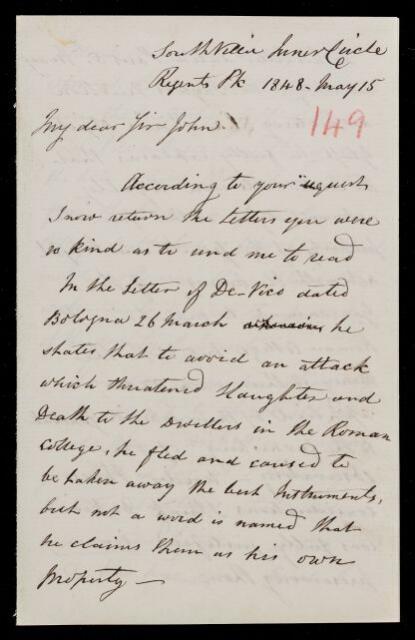 South Villa Inner Circle
Regents Pk 1848 - May 15
149
My dear Sir John.
According to your request
I now return the Letters you were
so kind as to send me to read
In the Letter of De-Vico dated
Bologna 26 March he
states that to avoid an attack
which threatened slaughter and
Death to the Dwellers in the Roman
College, he fled and caused to
be taken away the best Instruments,
but not a word is named that
he claims them as his own
property —